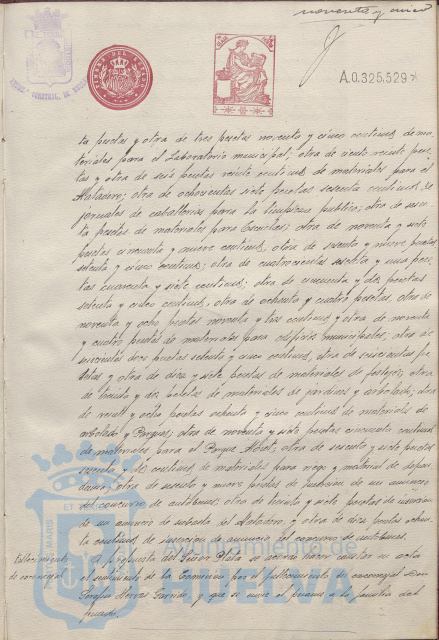 noventa y cinco
A.0.325.529
ta pesetas y otra de tres pesetas noventa y cinco centimos de ma-
teriales para el Laboratorio municipal; otra de ciento veinte pese-
tas y otra de seis pesetas veinte centimos de materiales para el
Matadero; otra de ochocientas siete pesetas sesenta centimos de
jornales de caballerias para la limpieza publica; otra de sesen-
ta pesetas de materiales para Escuelas; otra de noventa y siete
pesetas cincuenta y nueve centimos, otra de sesenta y nueve pesetas
setenta y cinco centimos; otra de cuatrocientas sesenta y una pese-
tas cuarenta y siete centimos; otra de cincuenta y dos pesetas
setenta y cinco centimos, otra de ochenta y cuatro pesetas, otra de
noventa y ocho pesetas noventa y tres centimos y otra de noventa
y cuatro pesetas de materiales para edificios municipales, otra de
seiscientas doce pesetas setenta y cinco centimos, otra de seiscientas pe-
setas y otra de diez y siete pesetas de materiales de festejos; otra
de treinta y dos pesetas de materiales de jardines y arbolado; otra
de veinte y ocho pesetas ochenta y cinco centimos de materiales de
arbolado y Parques; otra de noventa y siete pesetas cincuenta centimos
de materiales para el Parque Moret; otra de sesenta y siete pesetas
sesenta y dos centimos de materiales para riego y material de
otra de sesenta y nueve pesetas de insercion de un anuncio
del concurso de autobuses; otra de treinta y siete pesetas de insercion
de un anuncio de subasta del Matadero, y otra de diez pesetas ochen-
ta centimos de insercion de anuncio del concurso de autobuses.
Fallecimiento
de concejal
A propuesta del Señor Plata se acordo hacer constar en acta
el sentimiento de la Comision por el fallecimiento del exconcejal Don
Garrido, y que se envie el pesame a la familia del
finado.
HUELVA